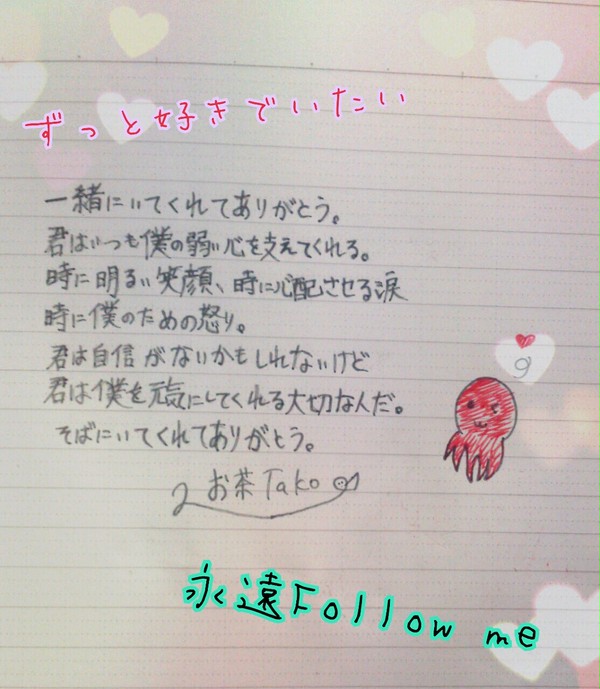 ずっと好きでいたい
一緒にいてくれてありがとう。
君はいつも僕の弱い心を支えてくれる。
時に明るい笑顔、時に心配させる涙
時に僕のための怒り。
君は自信がないかもしれないけど
君は僕を元気にしてくれる大切な人だ。
そばにいてくれてありがとう。
お茶Tako
永遠Follow me